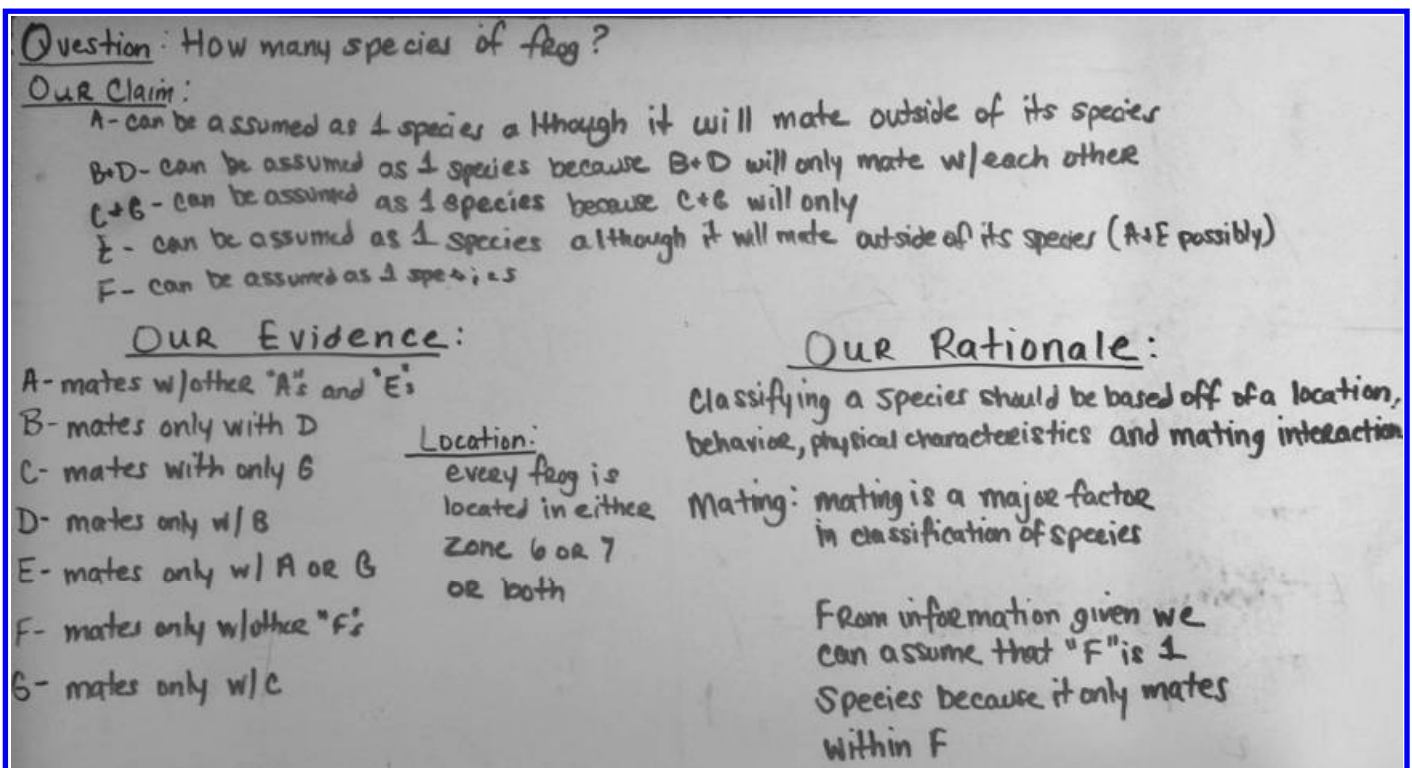 Question: How many species of frog?
Our Claim:
A- can be assumed as 1 species although it will mate outside of its species
B+D- can be assumed as 1 species because B+D will only mate w/each other
C+G - can be assumed as 1 species because C+G will only
E - can be assumed as 1 species although it will mate outside of its species (A+E possibly)
F- can be assumed as 1 species
Our Evidence:
A- mates w/other "A"s and "E"s
B- mates only with D
C- mates with only G
D- mates only w/ B
E- mates only w/ A or G
F- mates only w/other "F"s
G- mates only w/c
Location:
every frog is
located in either
Zone 6 or 7
or both
Our Rationale:
Classifying a species should be based off of a location,
behavior, physical characteristics and mating interaction
Mating: mating is a major factor
in classification of species
From information given we
can assume that "F" is 1
Species because it only mates
within F